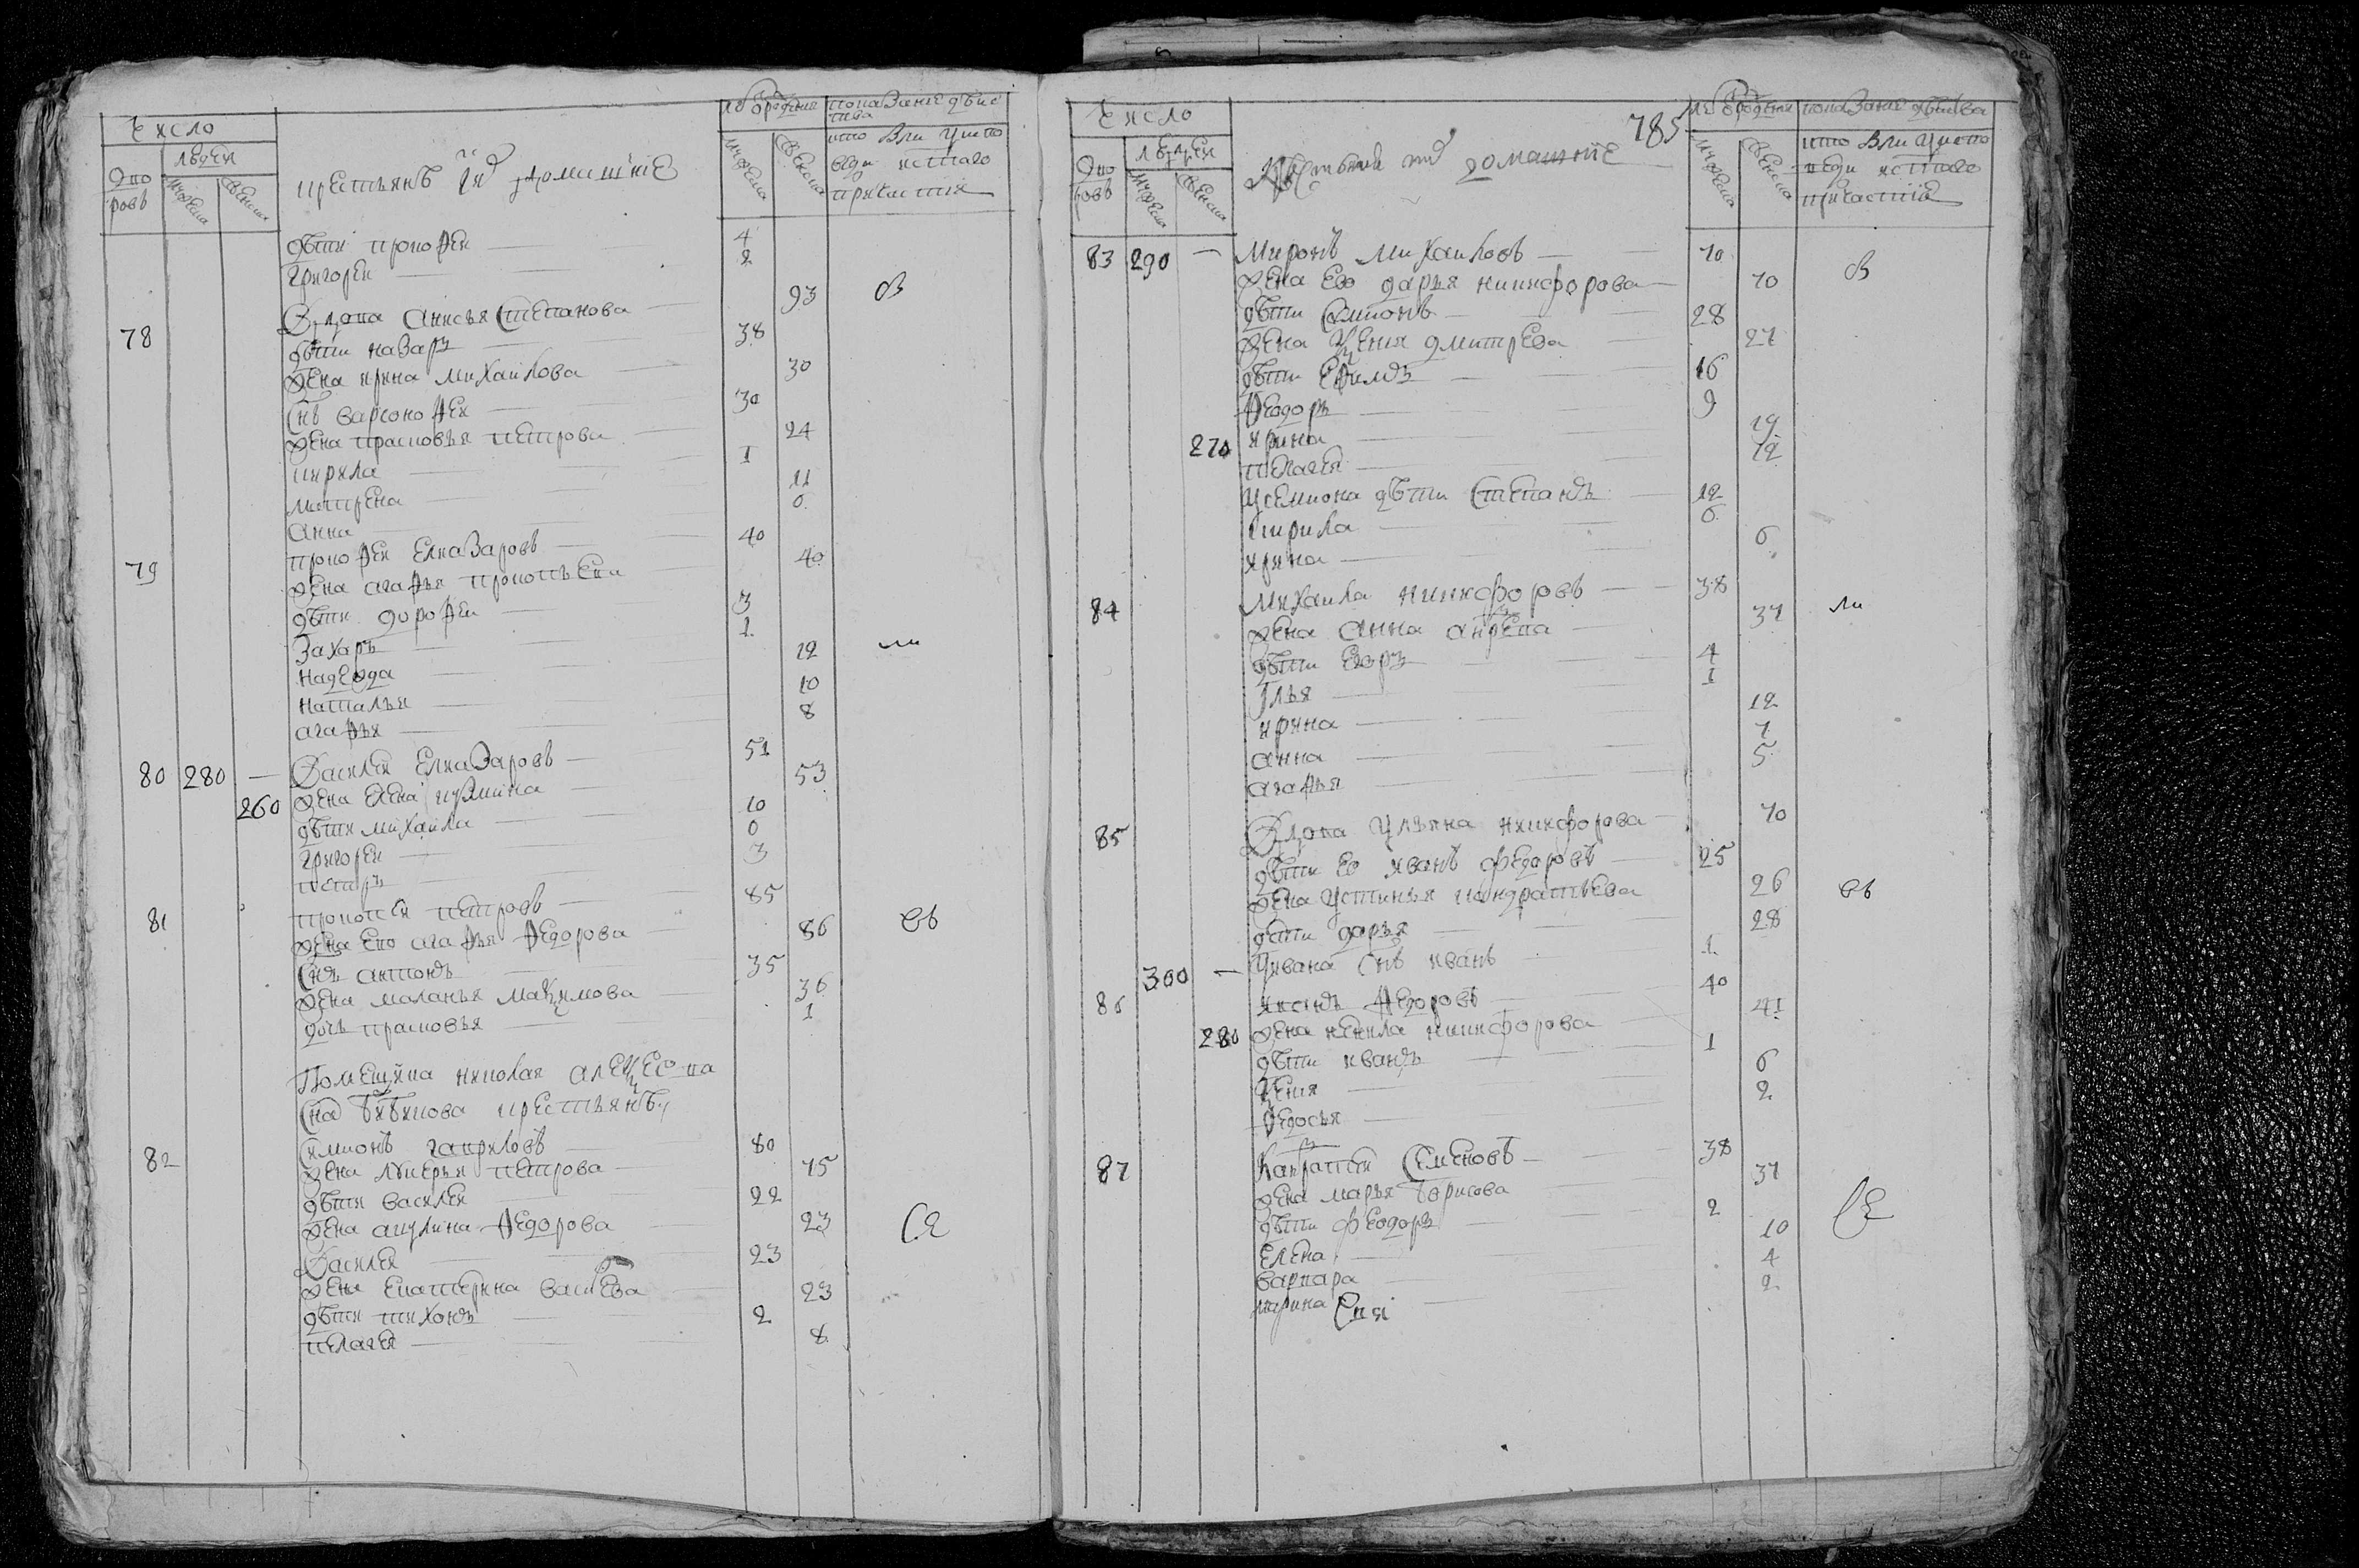 число
людей
дворовъ
мужеска
женска
крестьянъ и их домашние
лѣ от рождения
мужеска
женска
показание дѣйства
кто былъ у исповеди и с того причастия
дѣти прокофеи 4
григореи 2
78 Вдова анисья Степанова 93
дѣти назаръ 38
жена ирина михаилова 30
Снъ варсонофеи 30
жена прасковья петрова 24
кирила 1
матрена 11
анна 0
79 прокофеи елиазаровъ 40
жена агафья прокопьева 40
дѣти дорофеи 3
Захаръ 1
надежда 12
наталья 10
агафья 8
80 280 — Василеи елиазаровъ 51
260 жена елена кузмина 53
дѣти михаила 10
григореи 0
петръ 3
81 прокопеи петровъ 85
жена ево агафья федорова 86
Снъ антонъ 35
жена маланья максимова 36
дочь прасковья 1
Помещика николая алексеева
Сна бибикова крестьянъ
82 Симионъ гаврилов 80
жена лукерья петрова 75
дѣти василеи 22
жена акулина федорова 23
Василеи 23
жена екатерина васильева 23
дѣти тихонъ 2
пелагея 8
785
число
людей
дворовъ
мужеска
женска
Крестьяне и их домашние
лѣ от рождения
мужеска
женска
показание дѣйства
кто былъ у исповеди и с того причастие
83 290 — Миронъ михаиловъ 70
жена ево дарья никифорова 70
дѣти Симионъ 28
жена ксения дмитрева 27
дѣти ефимъ 16
Феодоръ 9
270 ирина 19
пелагея 12
у семиона дѣти Степанъ 12
кирила 6
ирина 6
84 Михаила никифоровъ 38
жена анна андреева 37
дѣти егоръ 4
Илья 1
ирина 12
анна 7
агафья 5
85 Вдова ульяна никифорова 70
дѣти ее иванъ федоровъ 25
жена устинья кондратьева 26
дѣти дарья 28
300 — у ивана снъ иванъ 1
86 иванъ федоровъ 40
280 жена ненила никифорова 41
дѣти иванъ 1
ксения 6
федосья 2
87 Кандратеи Семеновъ 38
жена марья борисова 37
дѣти феодоръ 2
елена 10
варвара 4
марина 2